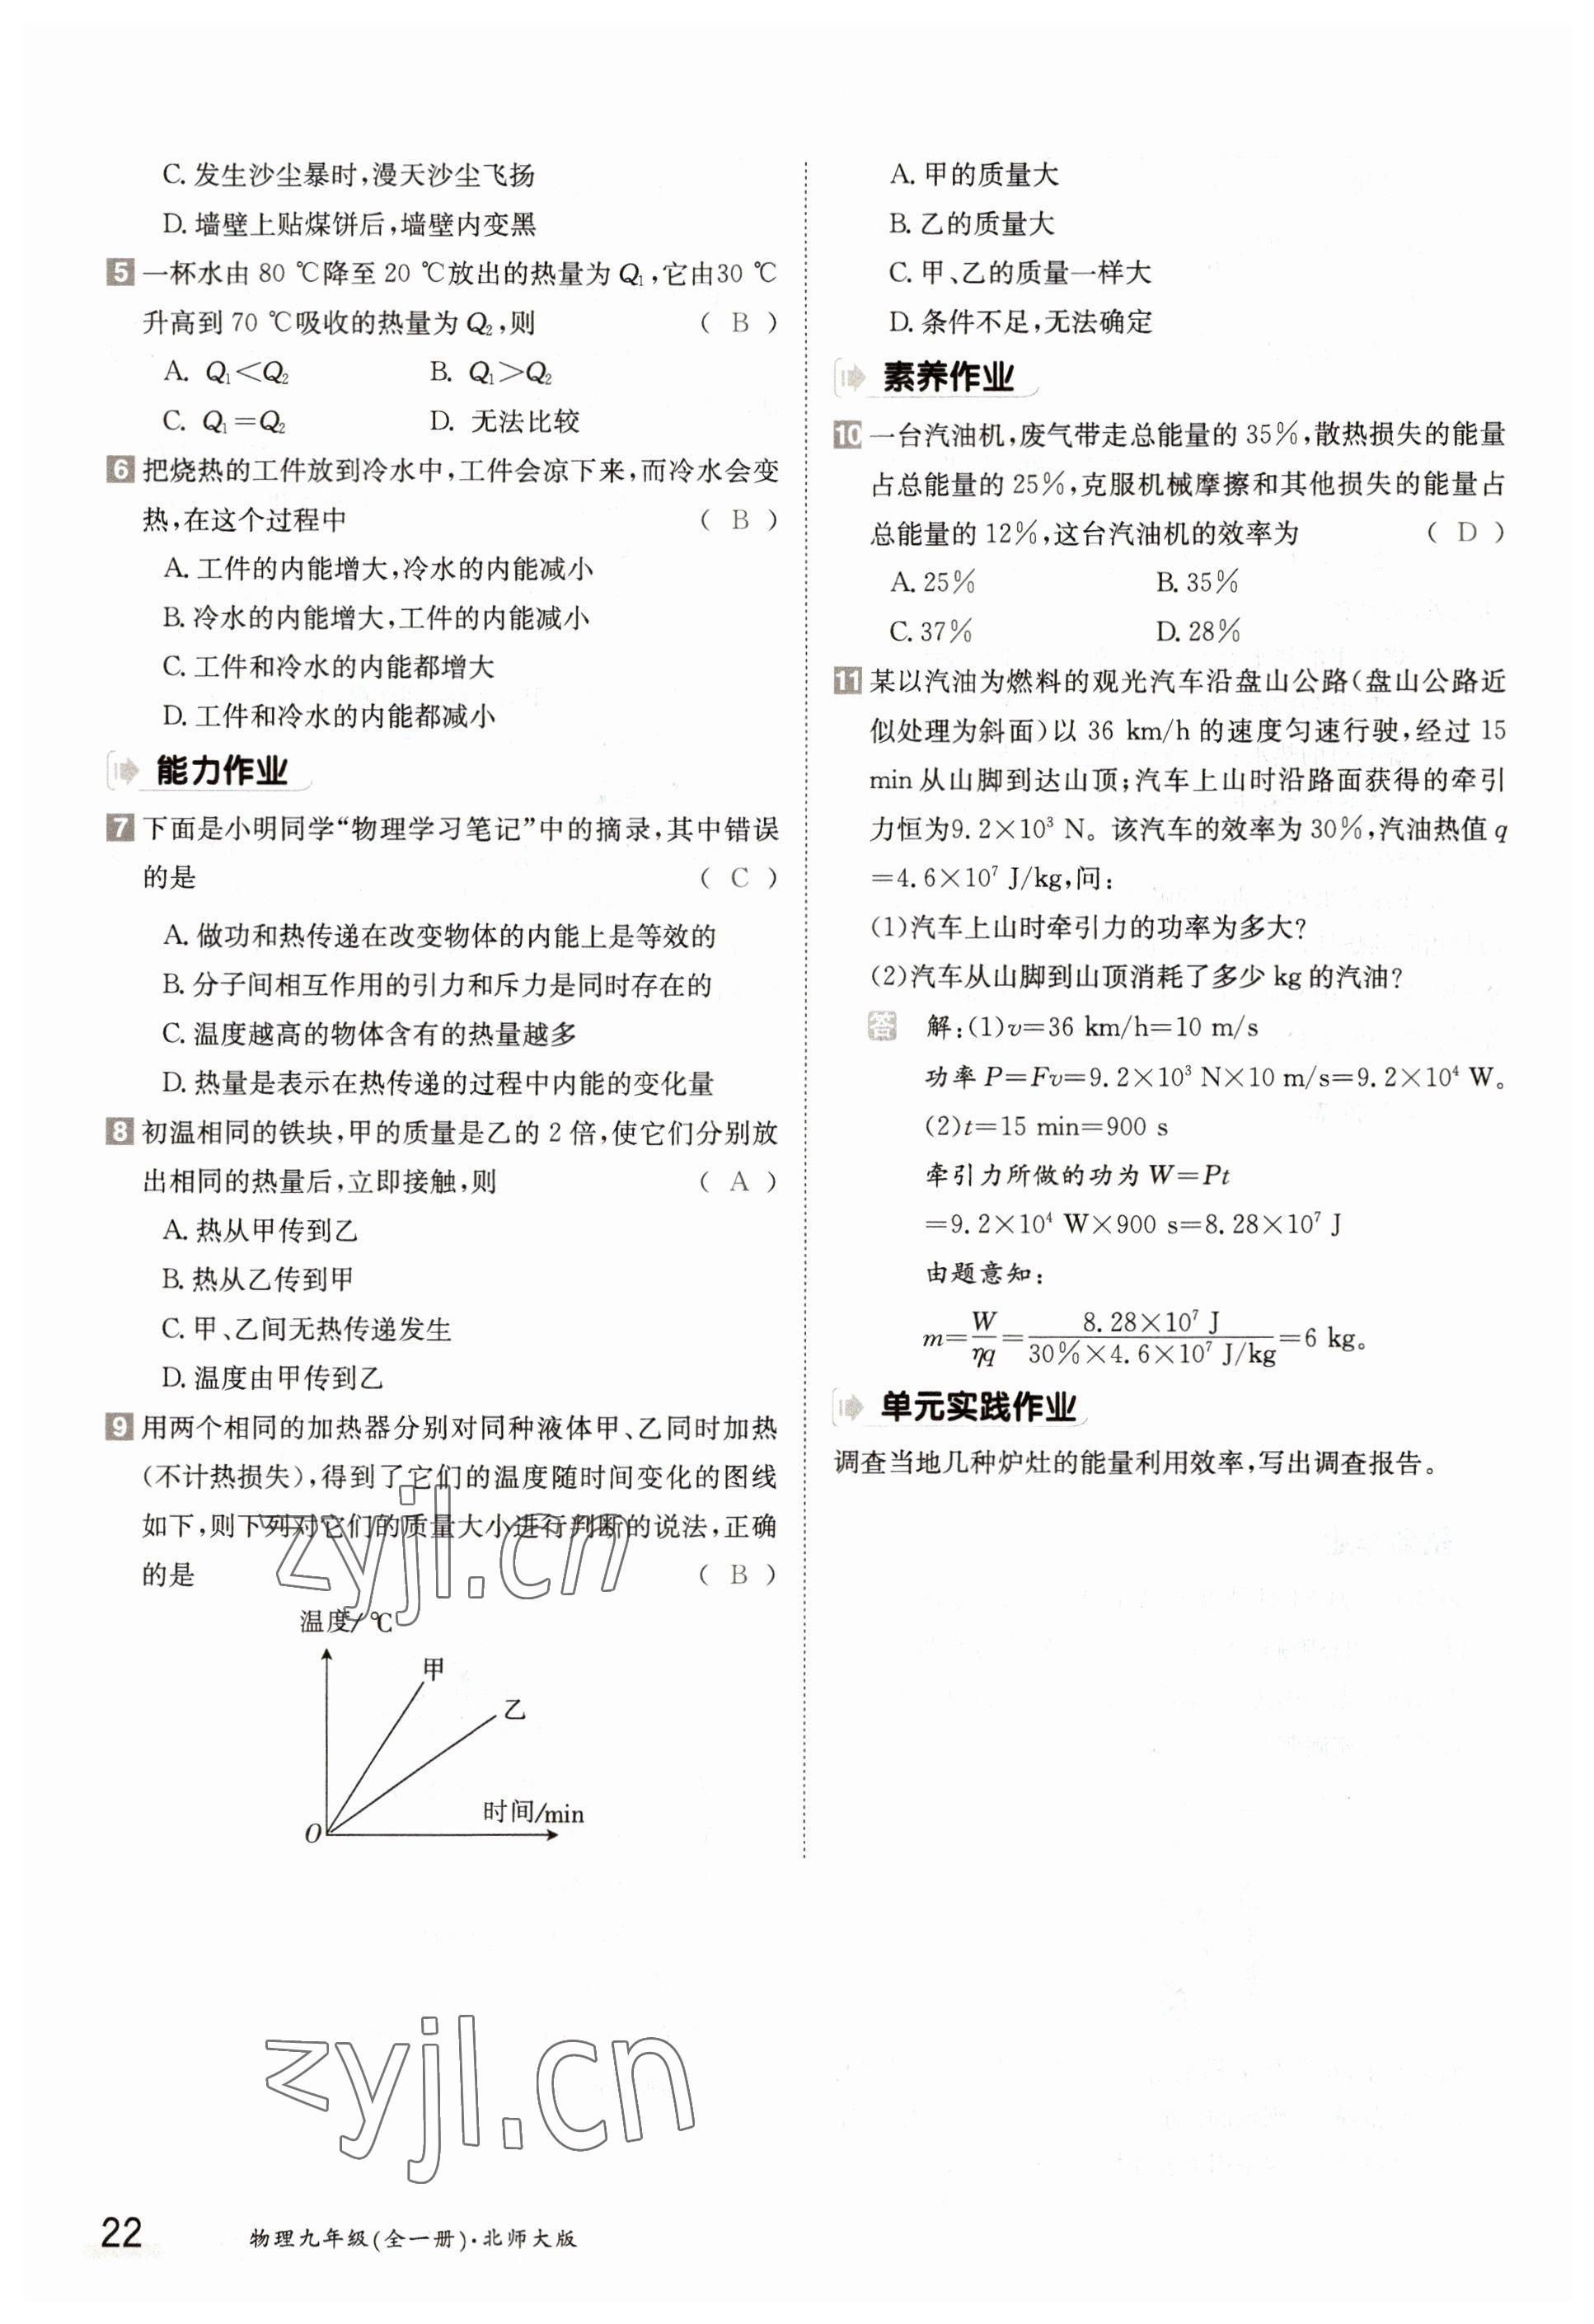 C. 发生沙尘暴时,漫天沙尘飞扬
D. 墙壁上贴煤饼后,墙壁内变黑
5 一杯水由 80 ℃降至 20 ℃放出的热量为 Q₁,它由30 ℃
升高到 70 ℃吸收的热量为 Q₂,则 ( B )
A. Q₁<Q₂ B. Q₁>Q₂
C. Q₁=Q₂ D. 无法比较
6 把烧热的工件放到冷水中,工件会凉下来,而冷水会变
热,在这个过程中 ( B )
A. 工件的内能增大,冷水的内能减小
B. 冷水的内能增大,工件的内能减小
C. 工件和冷水的内能都增大
D. 工件和冷水的内能都减小
能力作业
7 下面是小明同学“物理学习笔记”中的摘录,其中错误
的是 ( C )
A. 做功和热传递在改变物体的内能上是等效的
B. 分子间相互作用的引力和斥力是同时存在的
C. 温度越高的物体含有的热量越多
D. 热量是表示在热传递的过程中内能的变化量
8 初温相同的铁块,甲的质量是乙的 2 倍,使它们分别放
出相同的热量后,立即接触,则 ( A )
A. 热从甲传到乙
B. 热从乙传到甲
C. 甲、乙间无热传递发生
D. 温度由甲传到乙
9 用两个相同的加热器分别对同种液体甲、乙同时加热
(不计热损失),得到了它们的温度随时间变化的图线
如下,则下列对它们的质量大小进行判断的说法,正确
的是 ( B )
zyjl.cn
温度/℃
甲
乙
时间/min
O
A. 甲的质量大
B. 乙的质量大
C. 甲、乙的质量一样大
D. 条件不足,无法确定
素养作业
10 一台汽油机,废气带走总能量的 35%,散热损失的能量
占总能量的 25%,克服机械摩擦和其他损失的能量占
总能量的 12%,这台汽油机的效率为 ( D )
A. 25% B. 35%
C. 37% D. 28%
11 某以汽油为燃料的观光汽车沿盘山公路(盘山公路近
似处理为斜面)以 36 km/h 的速度匀速行驶,经过 15
min 从山脚到达山顶;汽车上山时沿路面获得的牵引
力恒为9.2×10³ N。该汽车的效率为 30%,汽油热值 q
=4.6×10⁷ J/kg,问:
(1)汽车上山时牵引力的功率为多大?
(2)汽车从山脚到山顶消耗了多少 kg 的汽油?
答 解:(1)v=36 km/h=10 m/s
功率 P=Fv=9.2×10³ N×10 m/s=9.2×10⁴ W。
(2)t=15 min=900 s
牵引力所做的功为 W=Pt
=9.2×10⁴ W×900 s=8.28×10⁷ J
由题意知:
m=W/ηq=8.28×10⁷ J/30%×4.6×10⁷ J/kg=6 kg。
单元实践作业
调查当地几种炉灶的能量利用效率,写出调查报告。
zyjl.cn
22 物理九年级(全一册)·北师大版